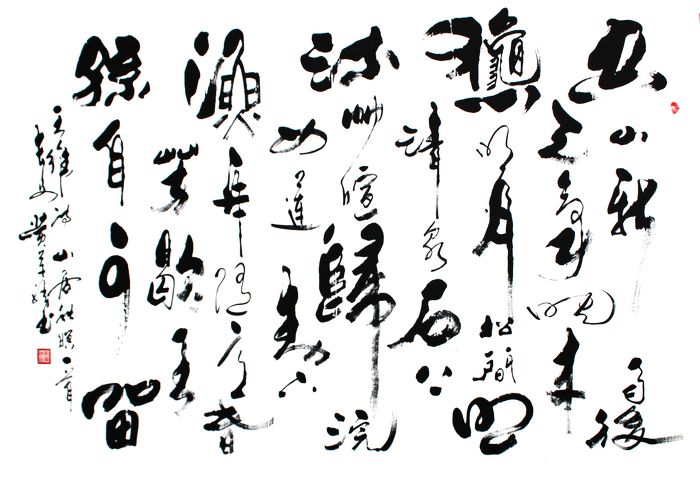 空山新雨後
天氣晚來
秋明月松間照
清泉石上
流竹喧歸浣
女蓮動下
漁舟隨意春
芳歇王
孫自可留
王維詩山居秋暝一首
書